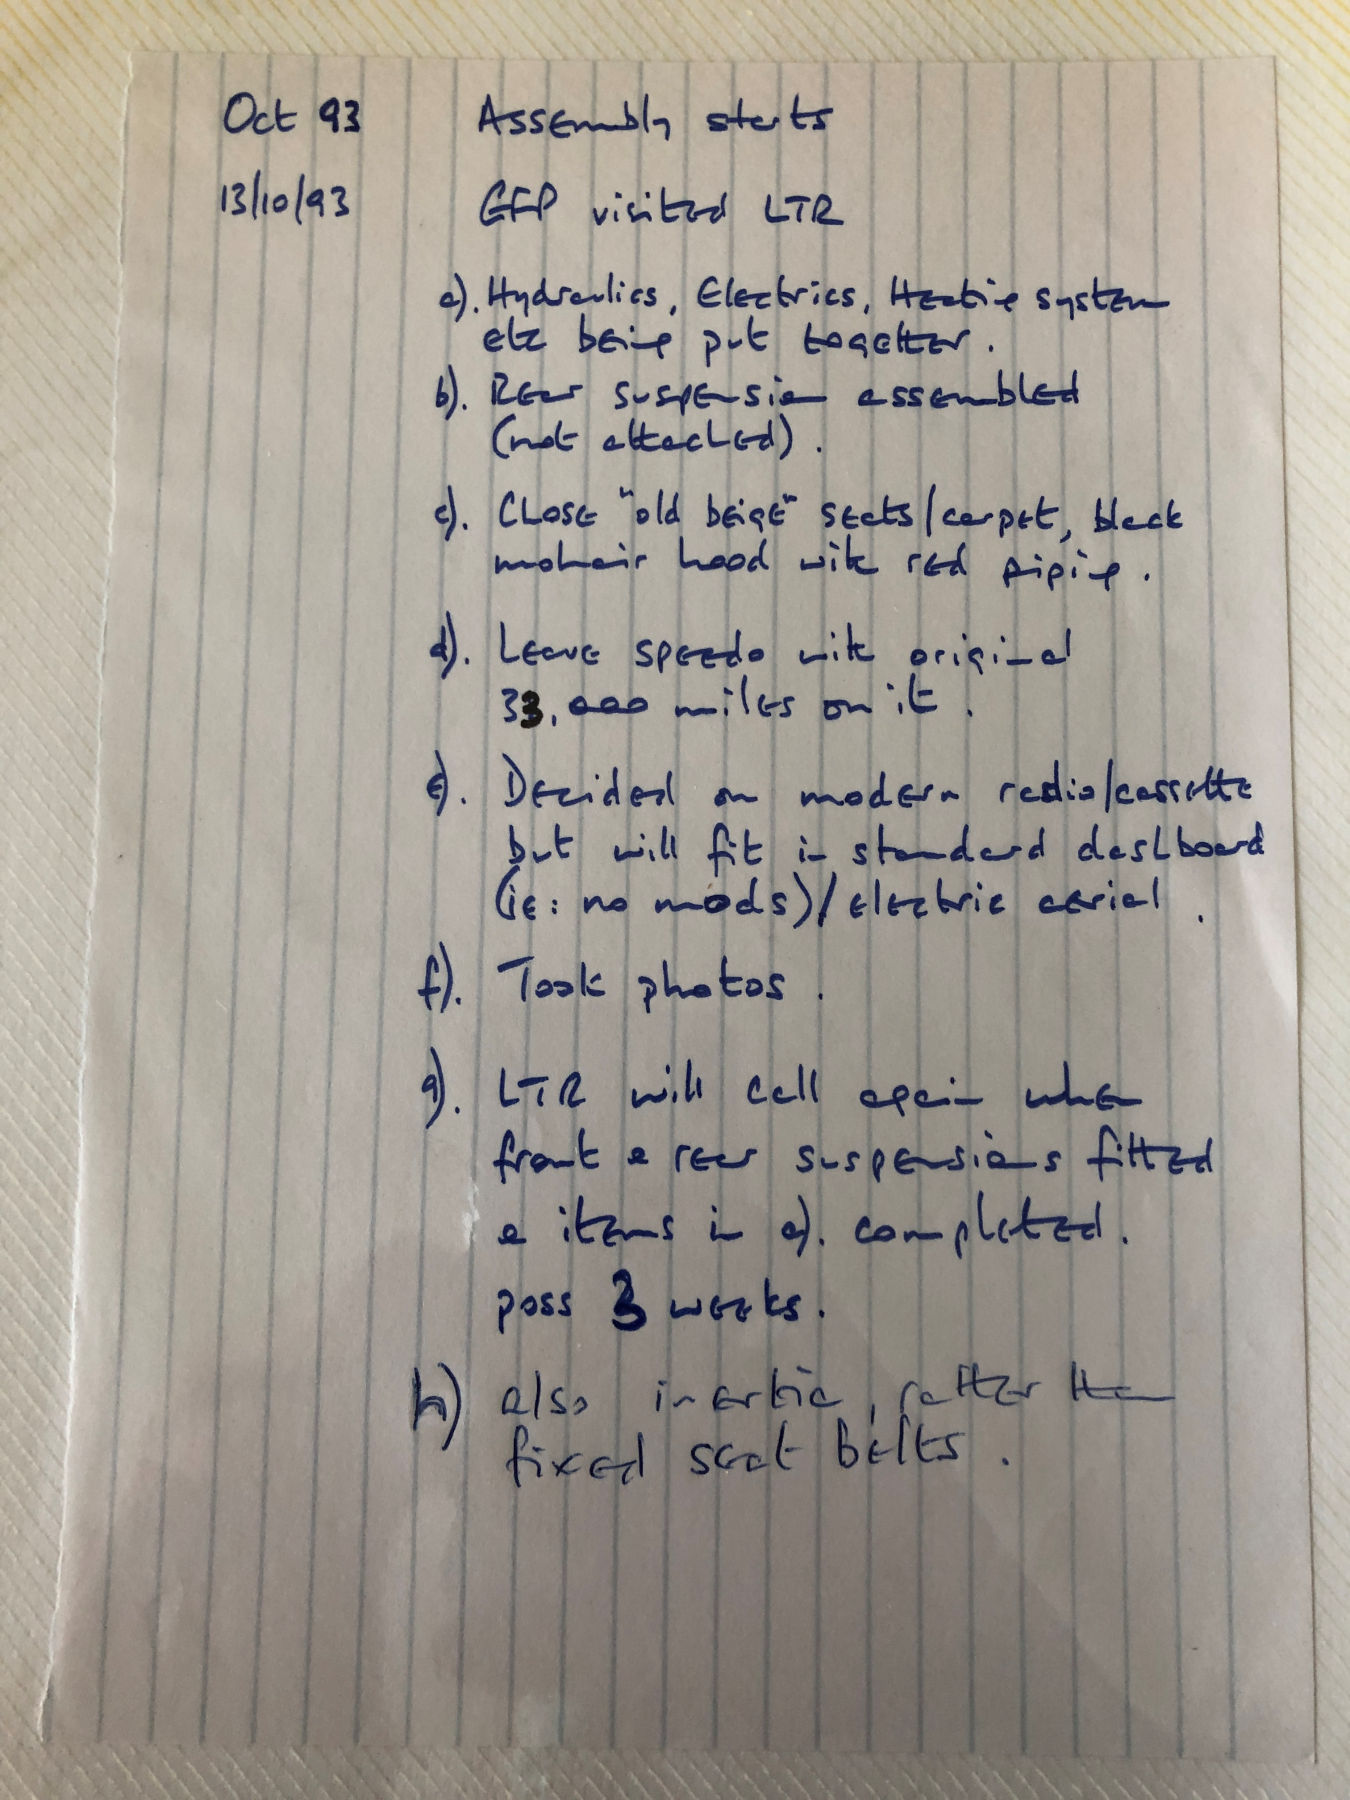 Oct 93 Assembly starts
13/10/93 GFP visited LTR
a). Hydraulics, Electrics, Heating system
etc being put together.
b). Rear suspension assembled
(not attached).
c). Chose "old beige" seats/carpet, black
mohair hood with red piping.
d). Leave speedo with original
33,000 miles on it.
e). Decided on modern radio/cassette
but will fit in standard dashboard
(ie: no mods)/electric aerial.
f). Took photos.
g). LTR will call again when
front & rear suspensions fitted
& items in a). completed.
poss 3 weeks.
h) also inertia, rather than
fixed seat belts.